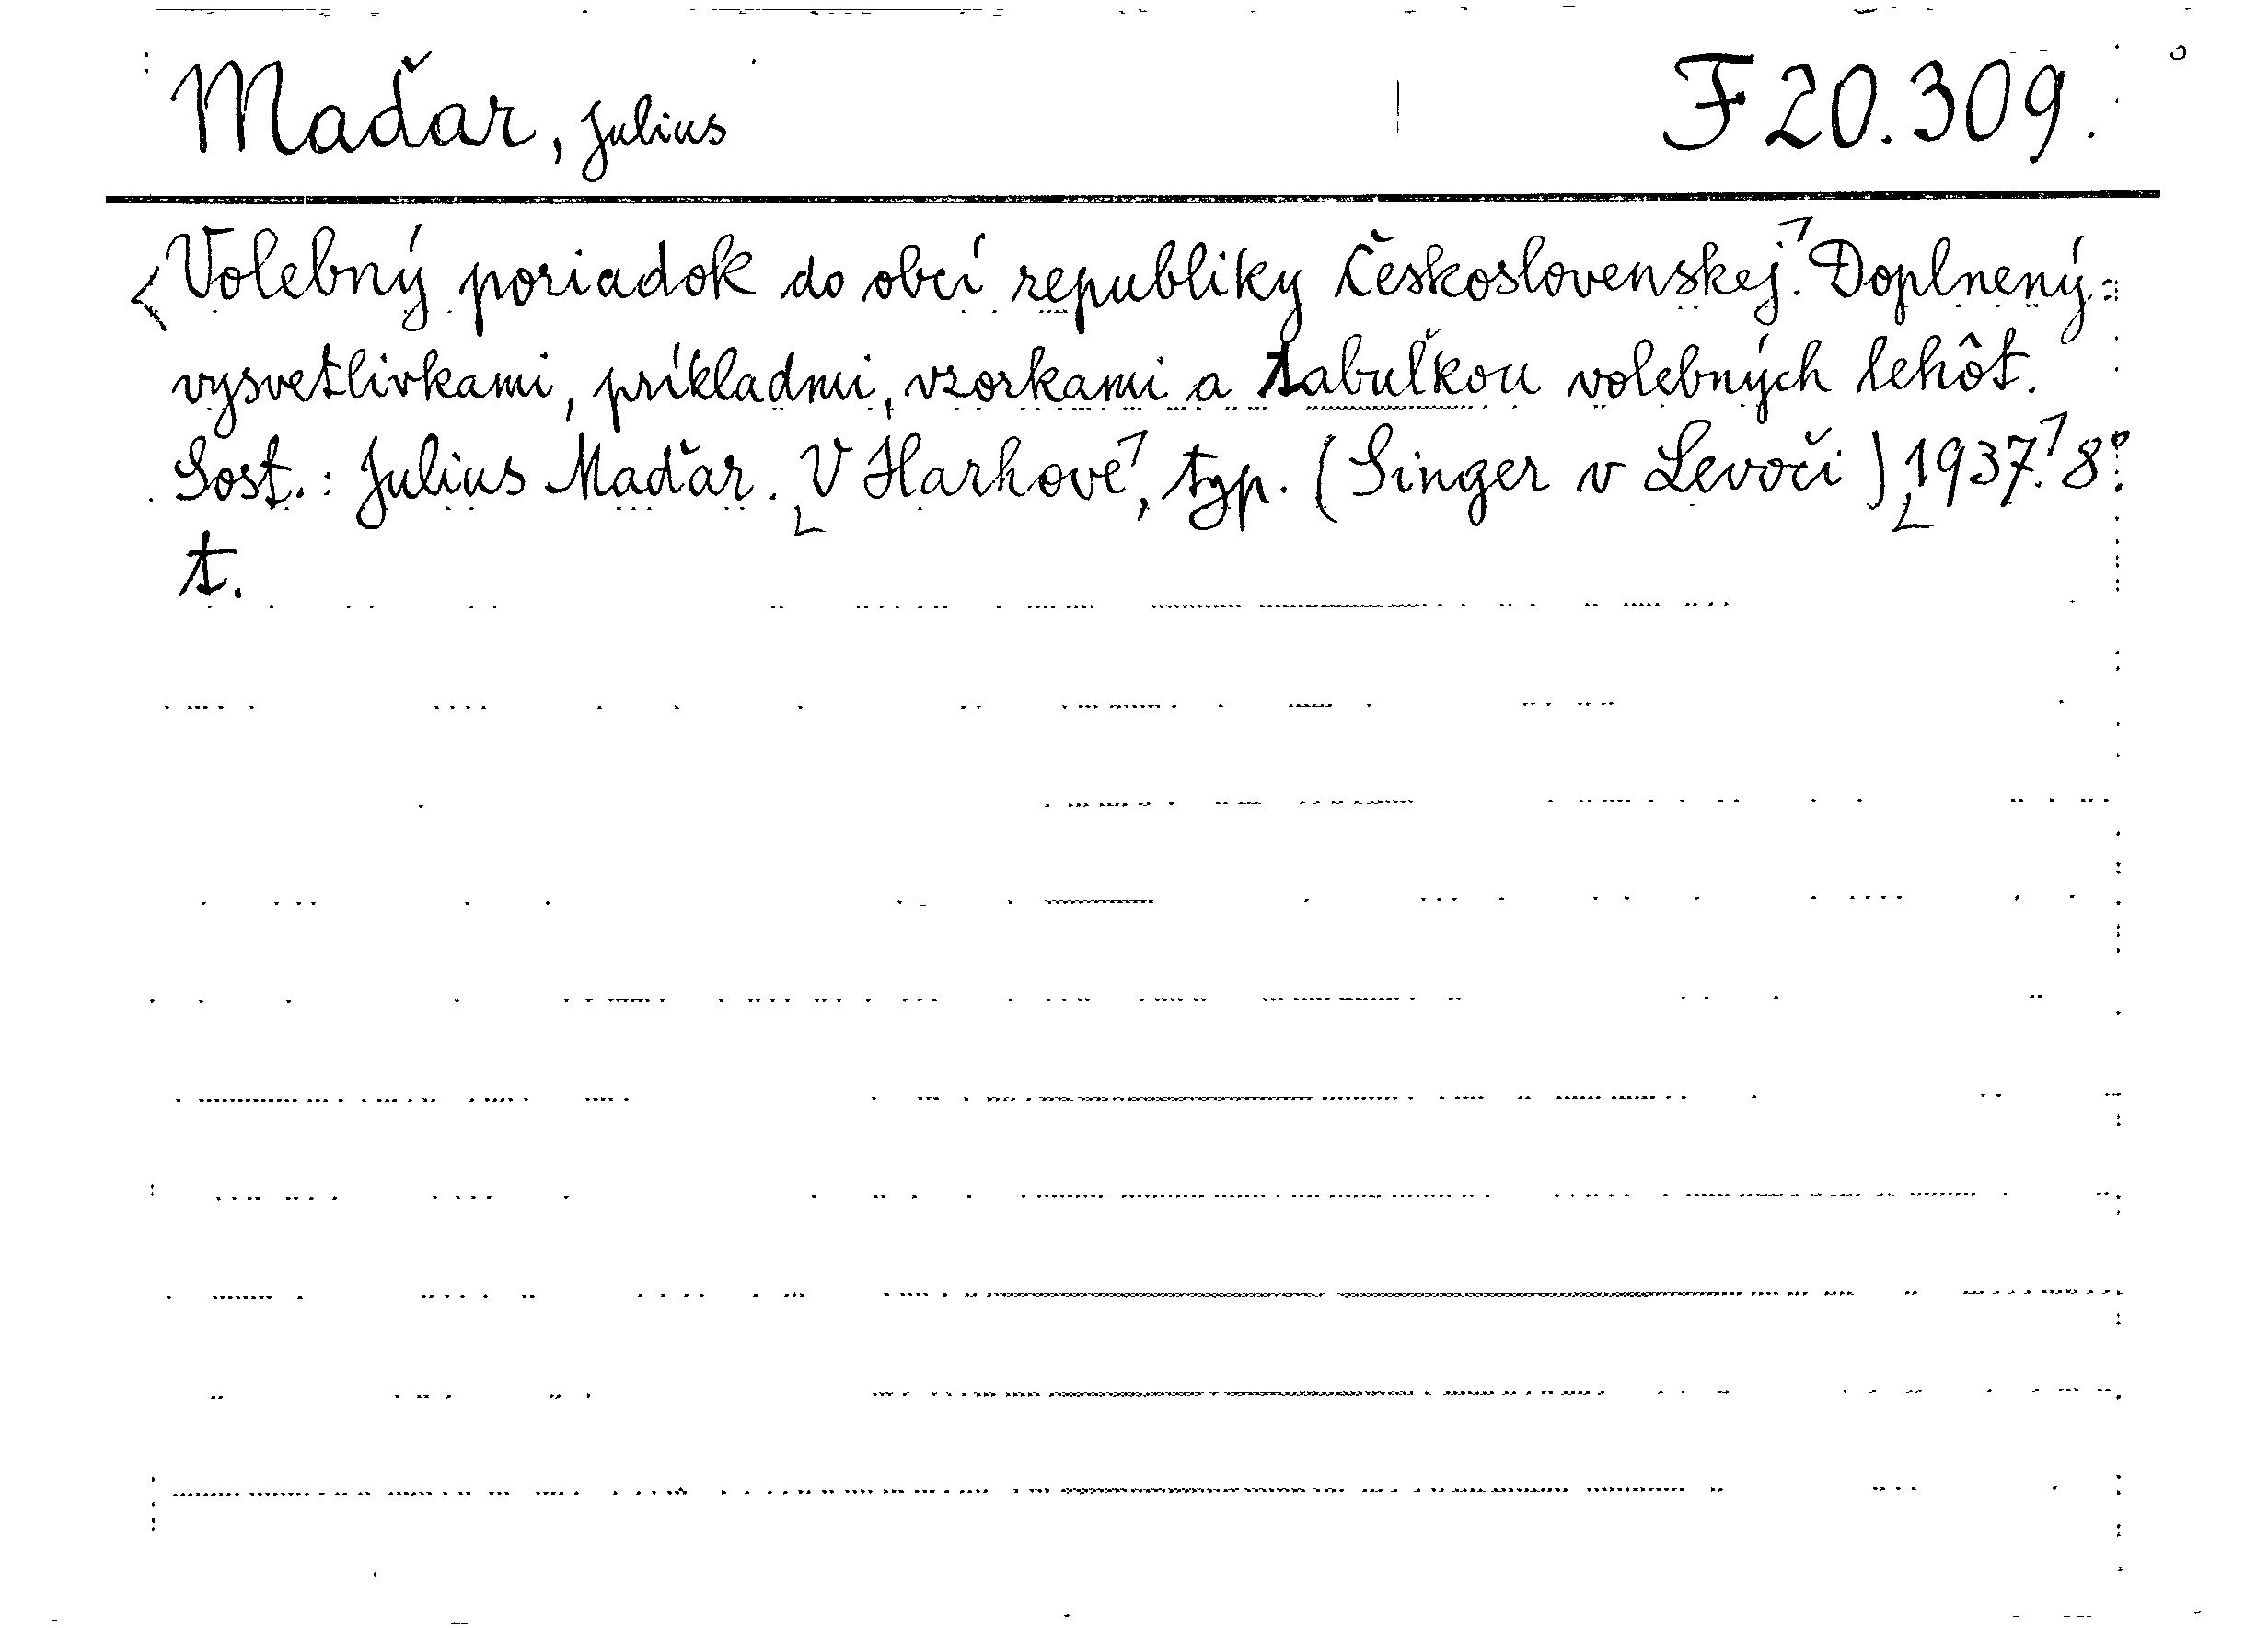 Maďar, Julius F 20.309.
Volebný poriadok do obcí republiky Československej. Doplnený
vysvetlivkami, príkladmi, vzorkami a tabuľkou volebných lehôt.
Sost.: Julius Maďar. V Harhove, typ. (Singer v Levoči) 1937. 8°.
t.